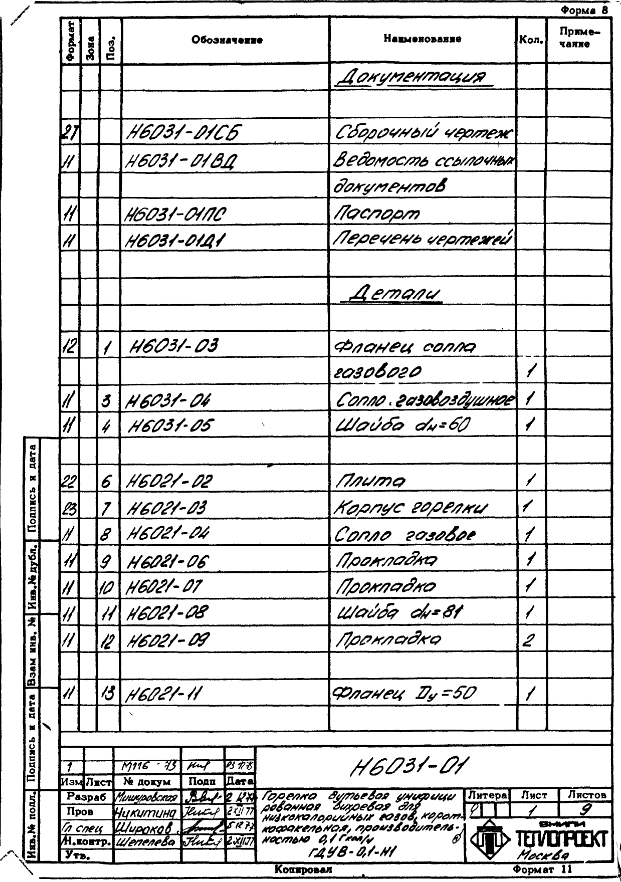 Форма 8
Формат Зона Поз. Обозначение Наименование Кол. Приме-
чание
Документация
27 Н6031-01СБ Сборочный чертеж
11 Н6031-01ВД Ведомость ссылочных
документов
11 Н6031-01ПС Паспорт
11 Н6031-01Д1 Перечень чертежей
Детали
12 1 Н6031-03 Фланец сопла
газового 1
11 3 Н6031-04 Сопло газовоздушное 1
11 4 Н6031-05 Шайба dн=60 1
22 6 Н6021-02 Плита 1
23 7 Н6021-03 Корпус горелки 1
11 8 Н6021-04 Сопло газовое 1
11 9 Н6021-06 Прокладка 1
11 10 Н6021-07 Прокладка 1
11 11 Н6021-08 Шайба dн=81 1
11 12 Н6021-09 Прокладка 2
11 13 Н6021-11 Фланец Dу=50 1
Подпись и дата
Инв.№ дубл.
Взам инв. №
Подпись и дата
Инв.№ подл.
1
Изм Лист № докум Подп Дата
Н6031-01
Разраб
Пров Никитина
Гл спец Широков
Н.контр. Шепелева
Утв.
Горелка дутьевая унифици
рованная вихревая для
низкокалорийных газов, корот-
кофакельная, производитель-
ностью 0,1 Гкал/ч
ГДУВ-0,1-Н1
Литера Лист Листов
1 9
ВНИПИ
ТЕПЛОПРОЕКТ
Москва
Копировал Формат 11